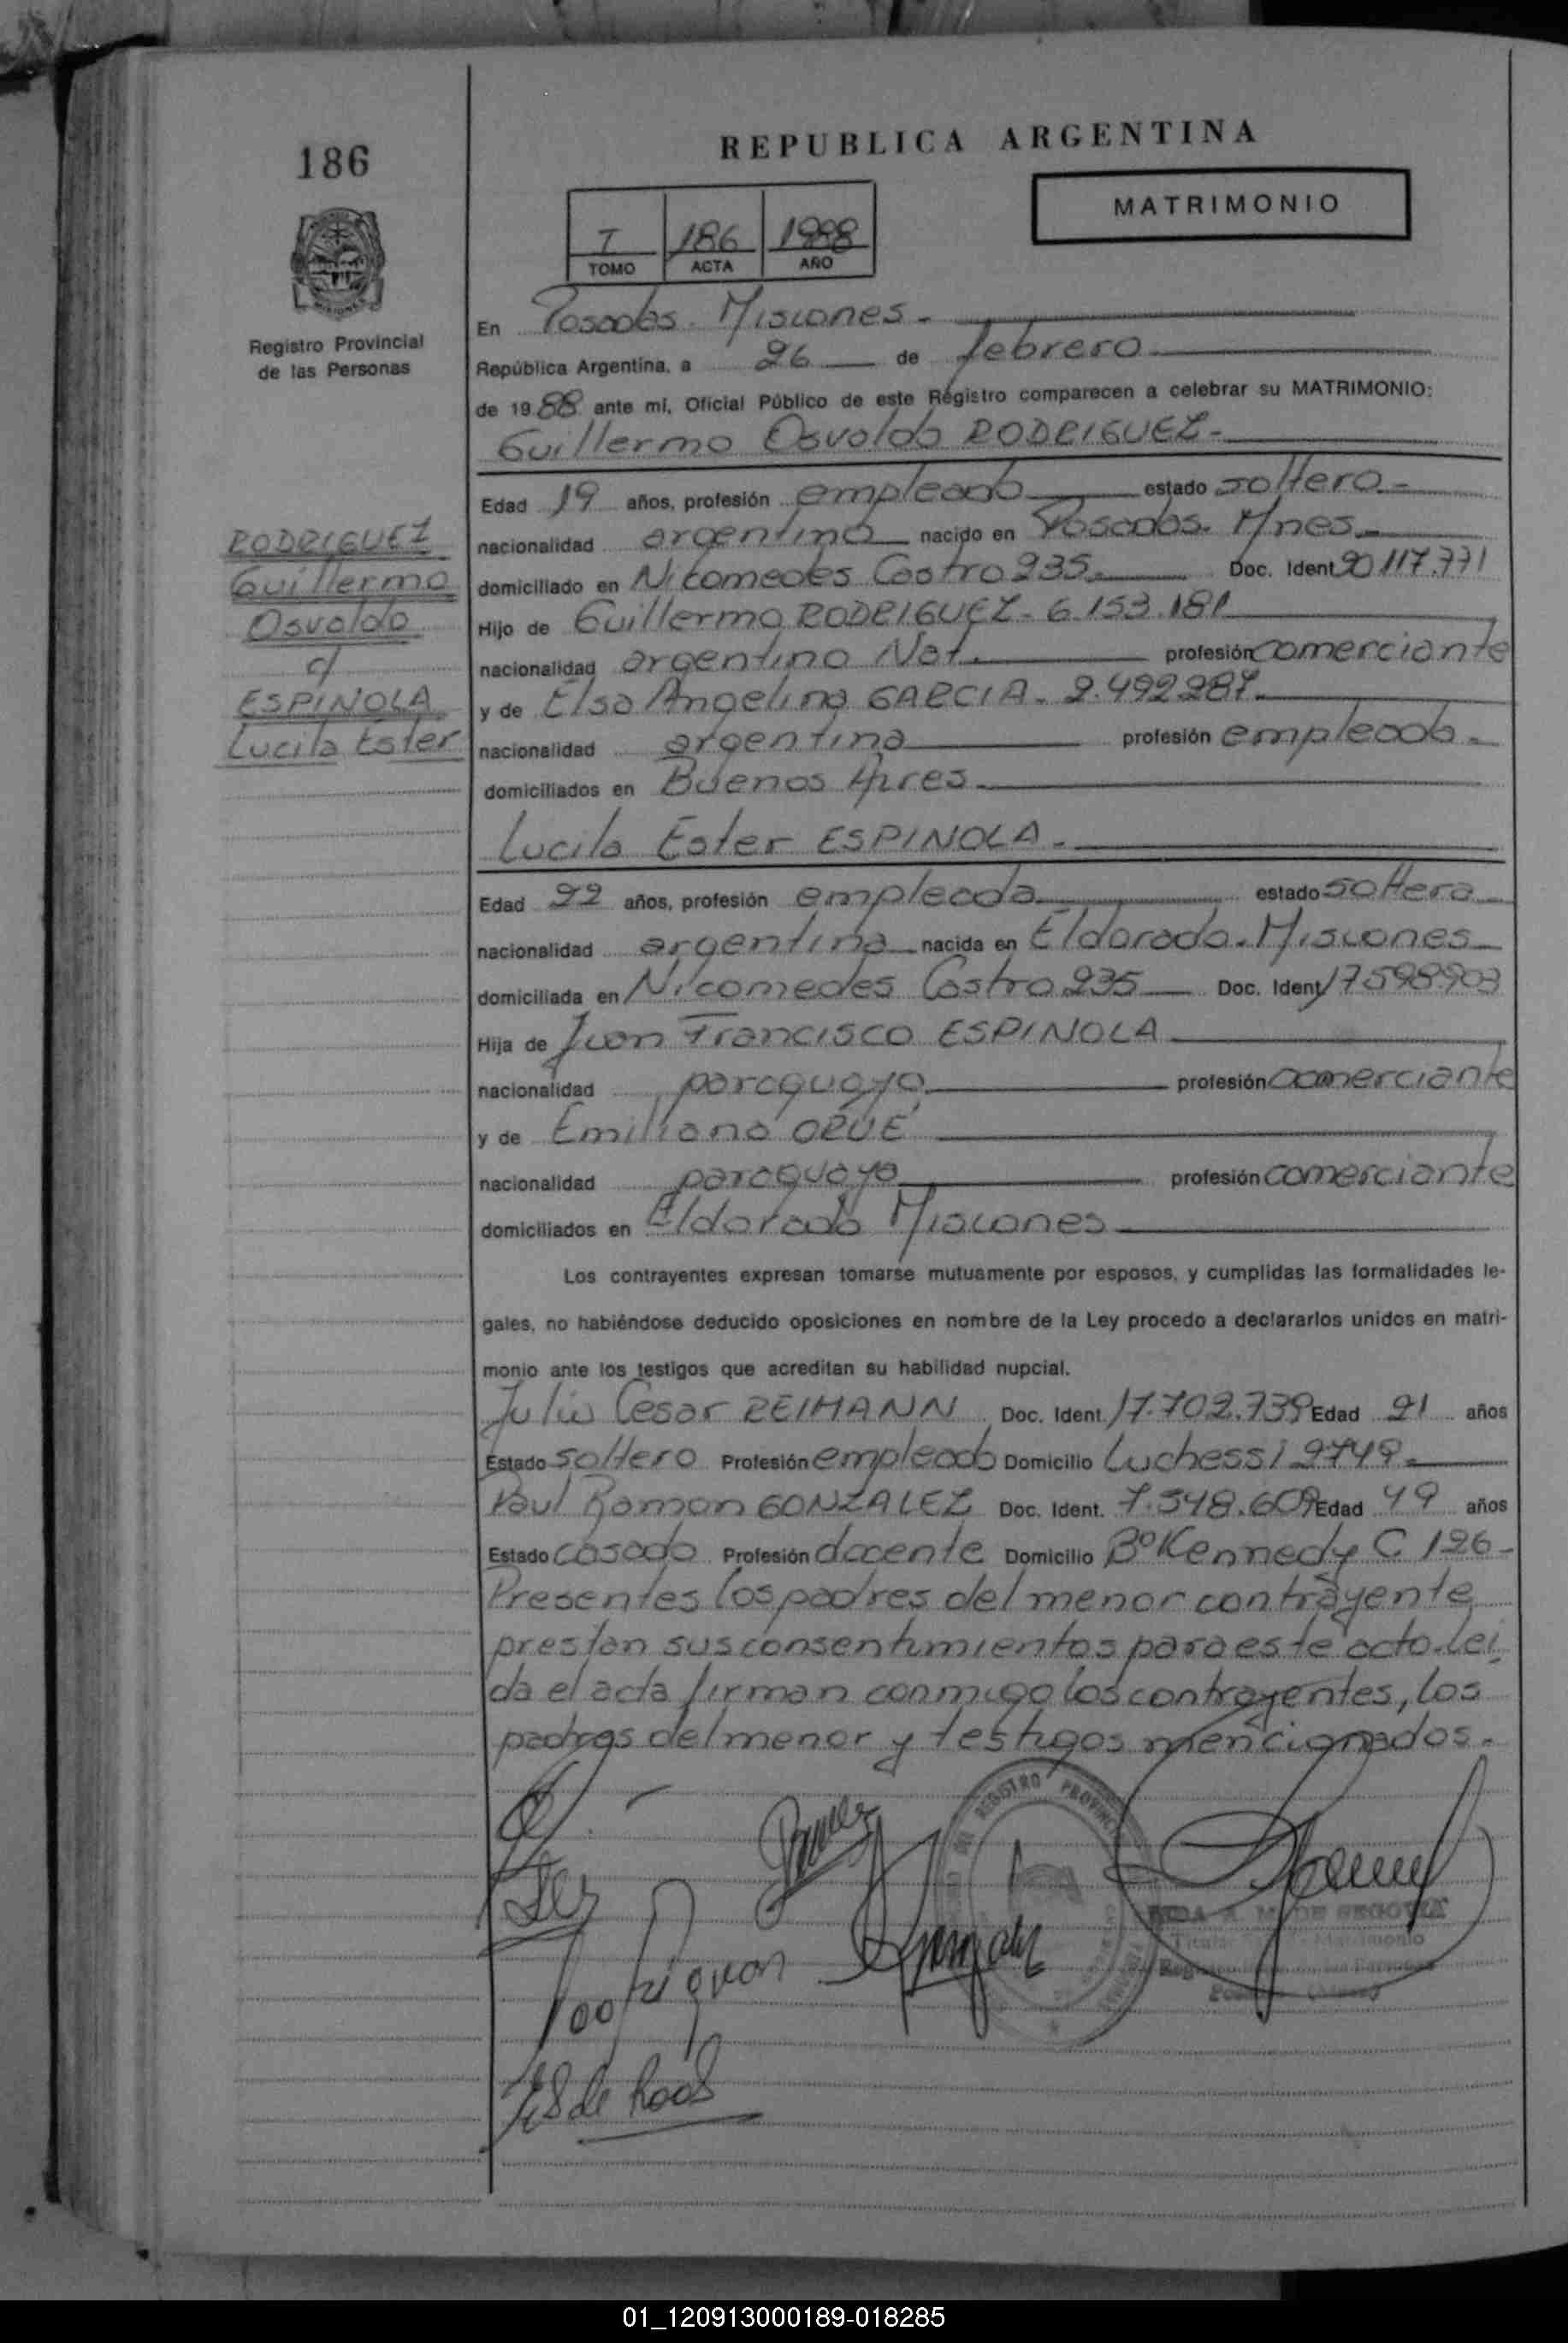 186
REPUBLICA ARGENTINA
MATRIMONIO
I 186 1988
TOMO ACTA AÑO
Registro Provincial
de las Personas
En Posadas. Misiones.-
República Argentina, a 26 de febrero
de 1988 ante mí, Oficial Público de este Registro comparecen a celebrar su MATRIMONIO:
Guillermo Osvaldo RODRIGUEZ-
Edad 19 años, profesión empleado estado soltero-
nacionalidad argentino nacido en Posadas. Mnes-
domiciliado en Nicomedes Castro 235- Doc. Ident 20.117.771
Hijo de Guillermo RODRIGUEZ- 6.153.181
nacionalidad argentino Nat. profesión comerciante
y de Elsa Angelina GARCIA- 2.492.287-
nacionalidad argentina profesión empleada-
domiciliados en Buenos Aires-
RODRIGUEZ
Guillermo
Osvaldo
c/
ESPINOLA
Lucila Ester
Lucila Ester ESPINOLA-
Edad 22 años, profesión empleada estado soltera
nacionalidad argentina nacida en Eldorado-Misiones
domiciliada en Nicomedes Castro 235 Doc. Ident 17598903
Hija de Juan Francisco ESPINOLA
nacionalidad paraguaya profesión comerciante
y de Emiliana ORUE
nacionalidad paraguaya profesión comerciante
domiciliados en Eldorado Misiones
Los contrayentes expresan tomarse mutuamente por esposos, y cumplidas las formalidades le-
gales, no habiéndose deducido oposiciones en nombre de la Ley procedo a declararlos unidos en matri-
monio ante los testigos que acreditan su habilidad nupcial.
Julio Cesar REIMANN Doc. Ident. 17.702.739 Edad 21 años
Estado soltero Profesión empleado Domicilio Luchessi 2749-
Raul Ramon GONZALEZ Doc. Ident. 7.548.609 Edad 49 años
Estado casado Profesión docente Domicilio Bº Kennedy C 126-
Presentes los padres del menor contrayente
prestan sus consentimientos para este acto. Lei
da el acta firman conmigo los contrayentes, los
padres del menor y testigos mencionados.-
REGISTRO PROVINCIAL
A. M. DE SEGOVIA
Matrimonio
01_120913000189-018285